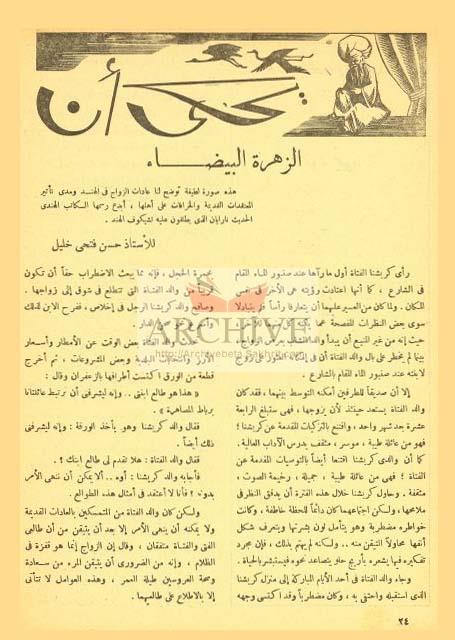 يحكى أن
الزهرة البيضاء
هذه صورة لطيفة توضح لنا عادات الزواج فى الهند ومدى تأثير
المعتقدات القديمة والخرافات على أهلها ، أبدع رسمها الكاتب الهندى
الحديث نارايان الذى يطلقون عليه تشيكوف الهند .
للأستاذ حسن فتحى خليل
رأى كريشنا الفتاة أول ما رآها عند صنبور الماء القام
فى الشارع ، كما أنها اعتادت رؤيته هى الأخرى فى نفس
المكان . ولما كان من العسير عليهما أن يتعارفا رأساً
سوى بعض النظرات المفصحة عما
حيث إنه من غير المتبع أن يبدأ والد الشاب بعرض الزواج،
بينما لم يخطر على بال والد الفتاة أن فى إمكانه العثور على زوج
لابنته عند صنبور الماء القام بالشارع .
إلا أن صديقاً للطرفين أمكنه التوسط بينهما ، فقد كان
والد الفتاة يستعد حينئذ لأن يزوجها ، فهى ستبلغ الرابعة
عشرة بعد شهر واحد ، واقتنع بالتزكيات المقدمة عن كريشنا ؛
فهو من عائلة طيبة ، موسر ، مثقف يدرس الآداب العالية .
كما أن والدى كريشنا اقتنعا أيضاً بالتوصيات المقدمة عن
الفتاة ؛ فهى من عائلة طيبة ، جميلة ، رخيمة الصوت ،
مثقفة . وحاول كريشنا خلال هذه الفترة أن يدقق النظر فى
ملامحها، ولكن اجتماعهما كان دائماً للحظة خاطفة ، وكانت
خواطره مضطربة وهو يتأمل لون بشرتها ويتعرف شكل
أنفها محاولاً التيقن منه .. ولكنه لم يهتم بذلك ، فإن مجرد
تفكيره فيها يشعره بأريج حلو يتصاعد نحوه فيستبشر بالحياة .
وجاء والد الفتاة فى أحد الأيام المباركة إلى منزل كريشنا
الذى استقبله واحتفى به ، وكان مضطرباً وقد اكتسى وجهه
بحمرة الخجل ، فإنه مما يبعث الاضطراب حقاً أن تكون
قريباً من والد الفتاة التى تتطلع فى شوق إلى زواجها .
وصافح والد كريشنا الرجل فى إخلاص ، ففرح الابن لذلك
حدث والد الفتاة بعض الوقت عن الأمطار وأسعار
الأرز وانتخابات البلدية وبعض المشروعات ، ثم أخرج
قطعة من الورق اكتست أطرافها بالزعفران وقال :
« هذا هو طالع ابنتى . وإنه ليشرفنى أن ترتبط عائلتانا
برباط المصاهرة » .
فقال والد كريشنا وهو يأخذ الورقة : وإنه ليشرفنى
ذلك أيضاً .
فقال والد الفتاة : هلا تقدم لى طالع ابنك ؟ .
فأجابه والد كريشنا : أوه .. ألا يمكن أن ننهى الأمر
بدونه ؟ فأنا لا أعتقد فى أمثال هذه الطوالع .
ولكن كان والد الفتاة من المتمسكين بالعادات القديمة
ولا يمكنه أن ينهى الأمر إلا بعد أن يتيقن من أن طالعى
الفتى والفتاة متفقان ، وقال إن الزواج إنما هو قفزة فى
الظلام ، وإنه من الضرورى أن يتيقن المرء من سعادة
وصحة العروسين طيلة العمر ، وهذه العوامل لا تتأتى
إلا بالاطلاع على طالعيهما .
٢٤
ARCHIVE
http://Archivebeta.Sakhrit.com